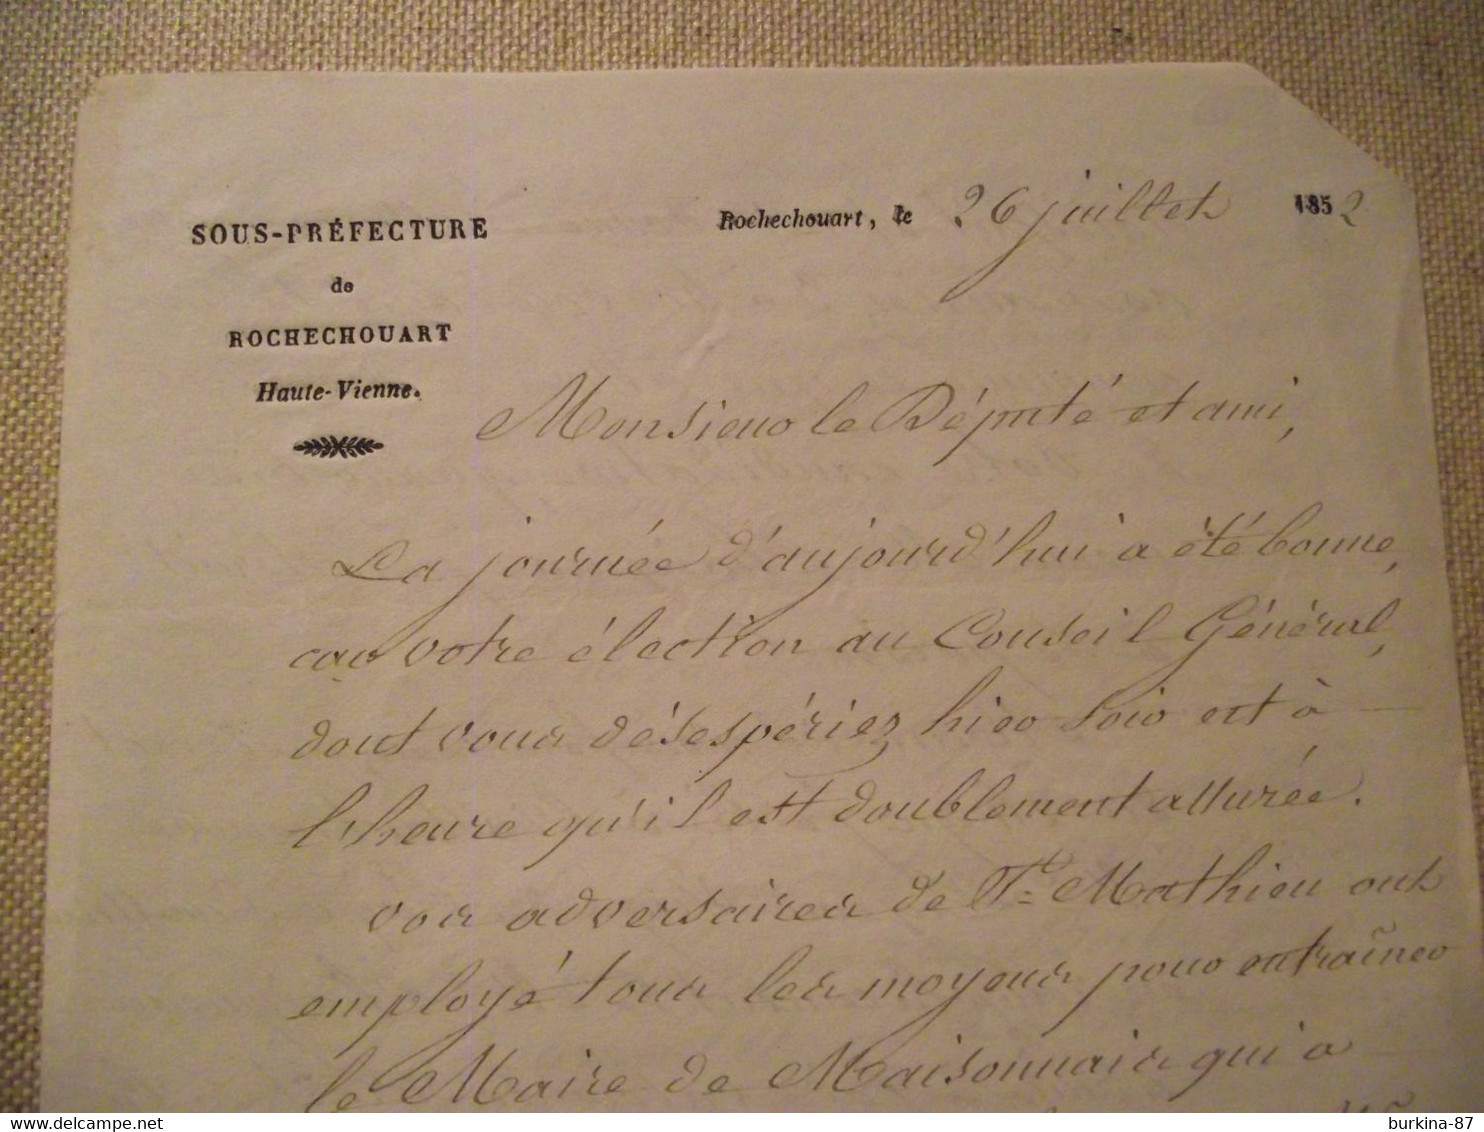 SOUS-PRÉFECTURE
de
ROCHECHOUART
Haute-Vienne.
Rochechouart, le 26 juillet 1852
Monsieur le Député et ami,
La journée d'aujourd'hui a été bonne,
car votre élection au Conseil Général,
dont vous désespériez hier soir est à
l'heure qu'il est doublement assurée.
vos adversaires de St= Mathieu ont
employé tous les moyens pour entraîner
le Maire de Maisonnais qui a
burkina-87